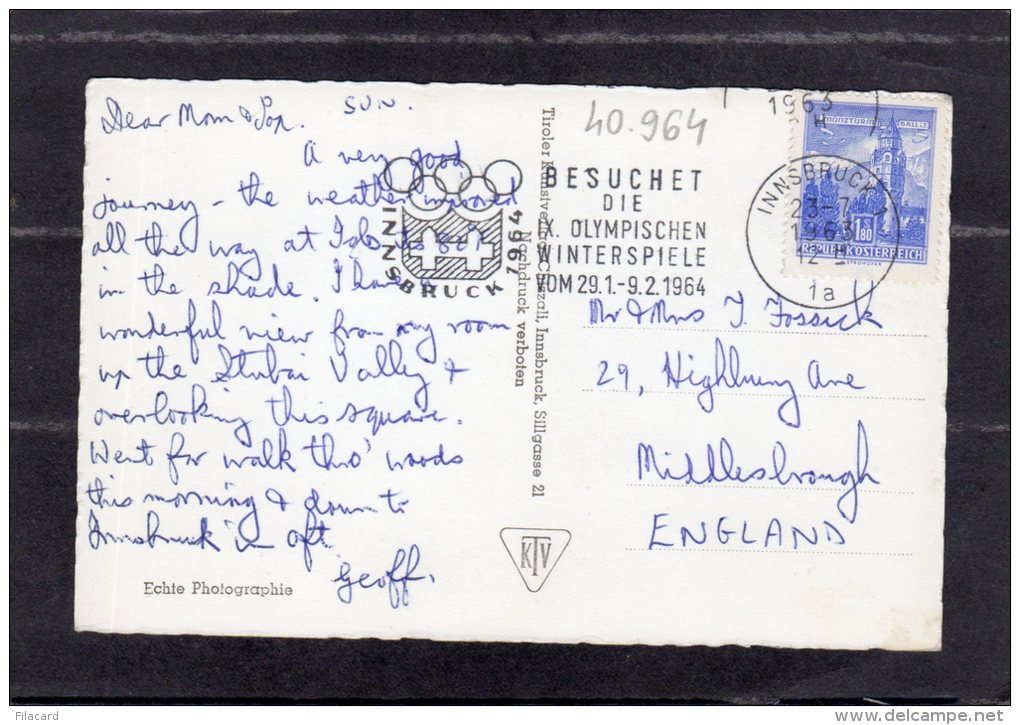 SUN.
Dear Mom & Pop.
A very good
journey - the weather improved
all the way at
in the shade. I have a
wonderful view from my room
up the Stubai Valley &
overlooking this square.
Went for walk thro' woods
this morning & down to
Innsbruck in aft.
Geoff.
Echte Photographie
INNSBRUCK 1964
Tiroler Kunstverlag Chizzali, Innsbruck, Sillgasse 21
Nachdruck verboten
KTV
40.964
BESUCHET
DIE
IX. OLYMPISCHEN
WINTERSPIELE
VOM 29.1.-9.2.1964
1963
MÜNZTURM HALL i.T.
INNSBRUCK
23-7
1963
12
1a
S 1.80
REPUBLIK ÖSTERREICH
Mr & Mrs J. Fossick
29, Highbury Ave
Middlesbrough
ENGLAND
Filacard
www.delcampe.net